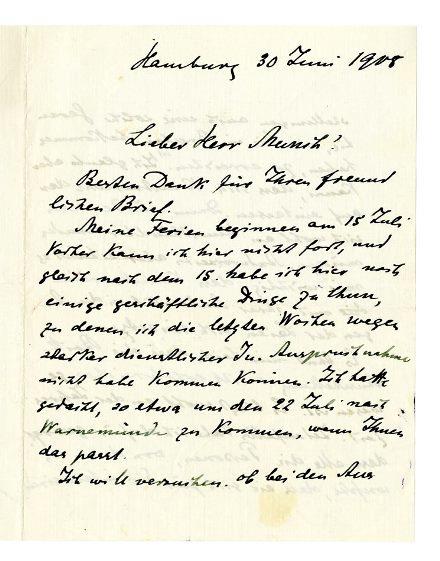 Hamburg 30 Juni 1908
Lieber Herr Munch!
Besten Dank für Ihren freund
lichen Brief.
Meine Ferien beginnen am 15 Juli
Vorher kann ich hier nicht fort, und
gleich nach dem 15. habe ich hier noch
einige geschäftliche Dinge zu thun,
zu denen ich die letzten Wochen wegen
starker dienstlicher In-Anspruchnahme
nicht habe kommen können. Ich hatte
gedacht, so etwa um den 22 Juli nach
Warnemünde zu kommen, wenn Ihnen
das passt.
Ich will versuchen, ob bei den Aus